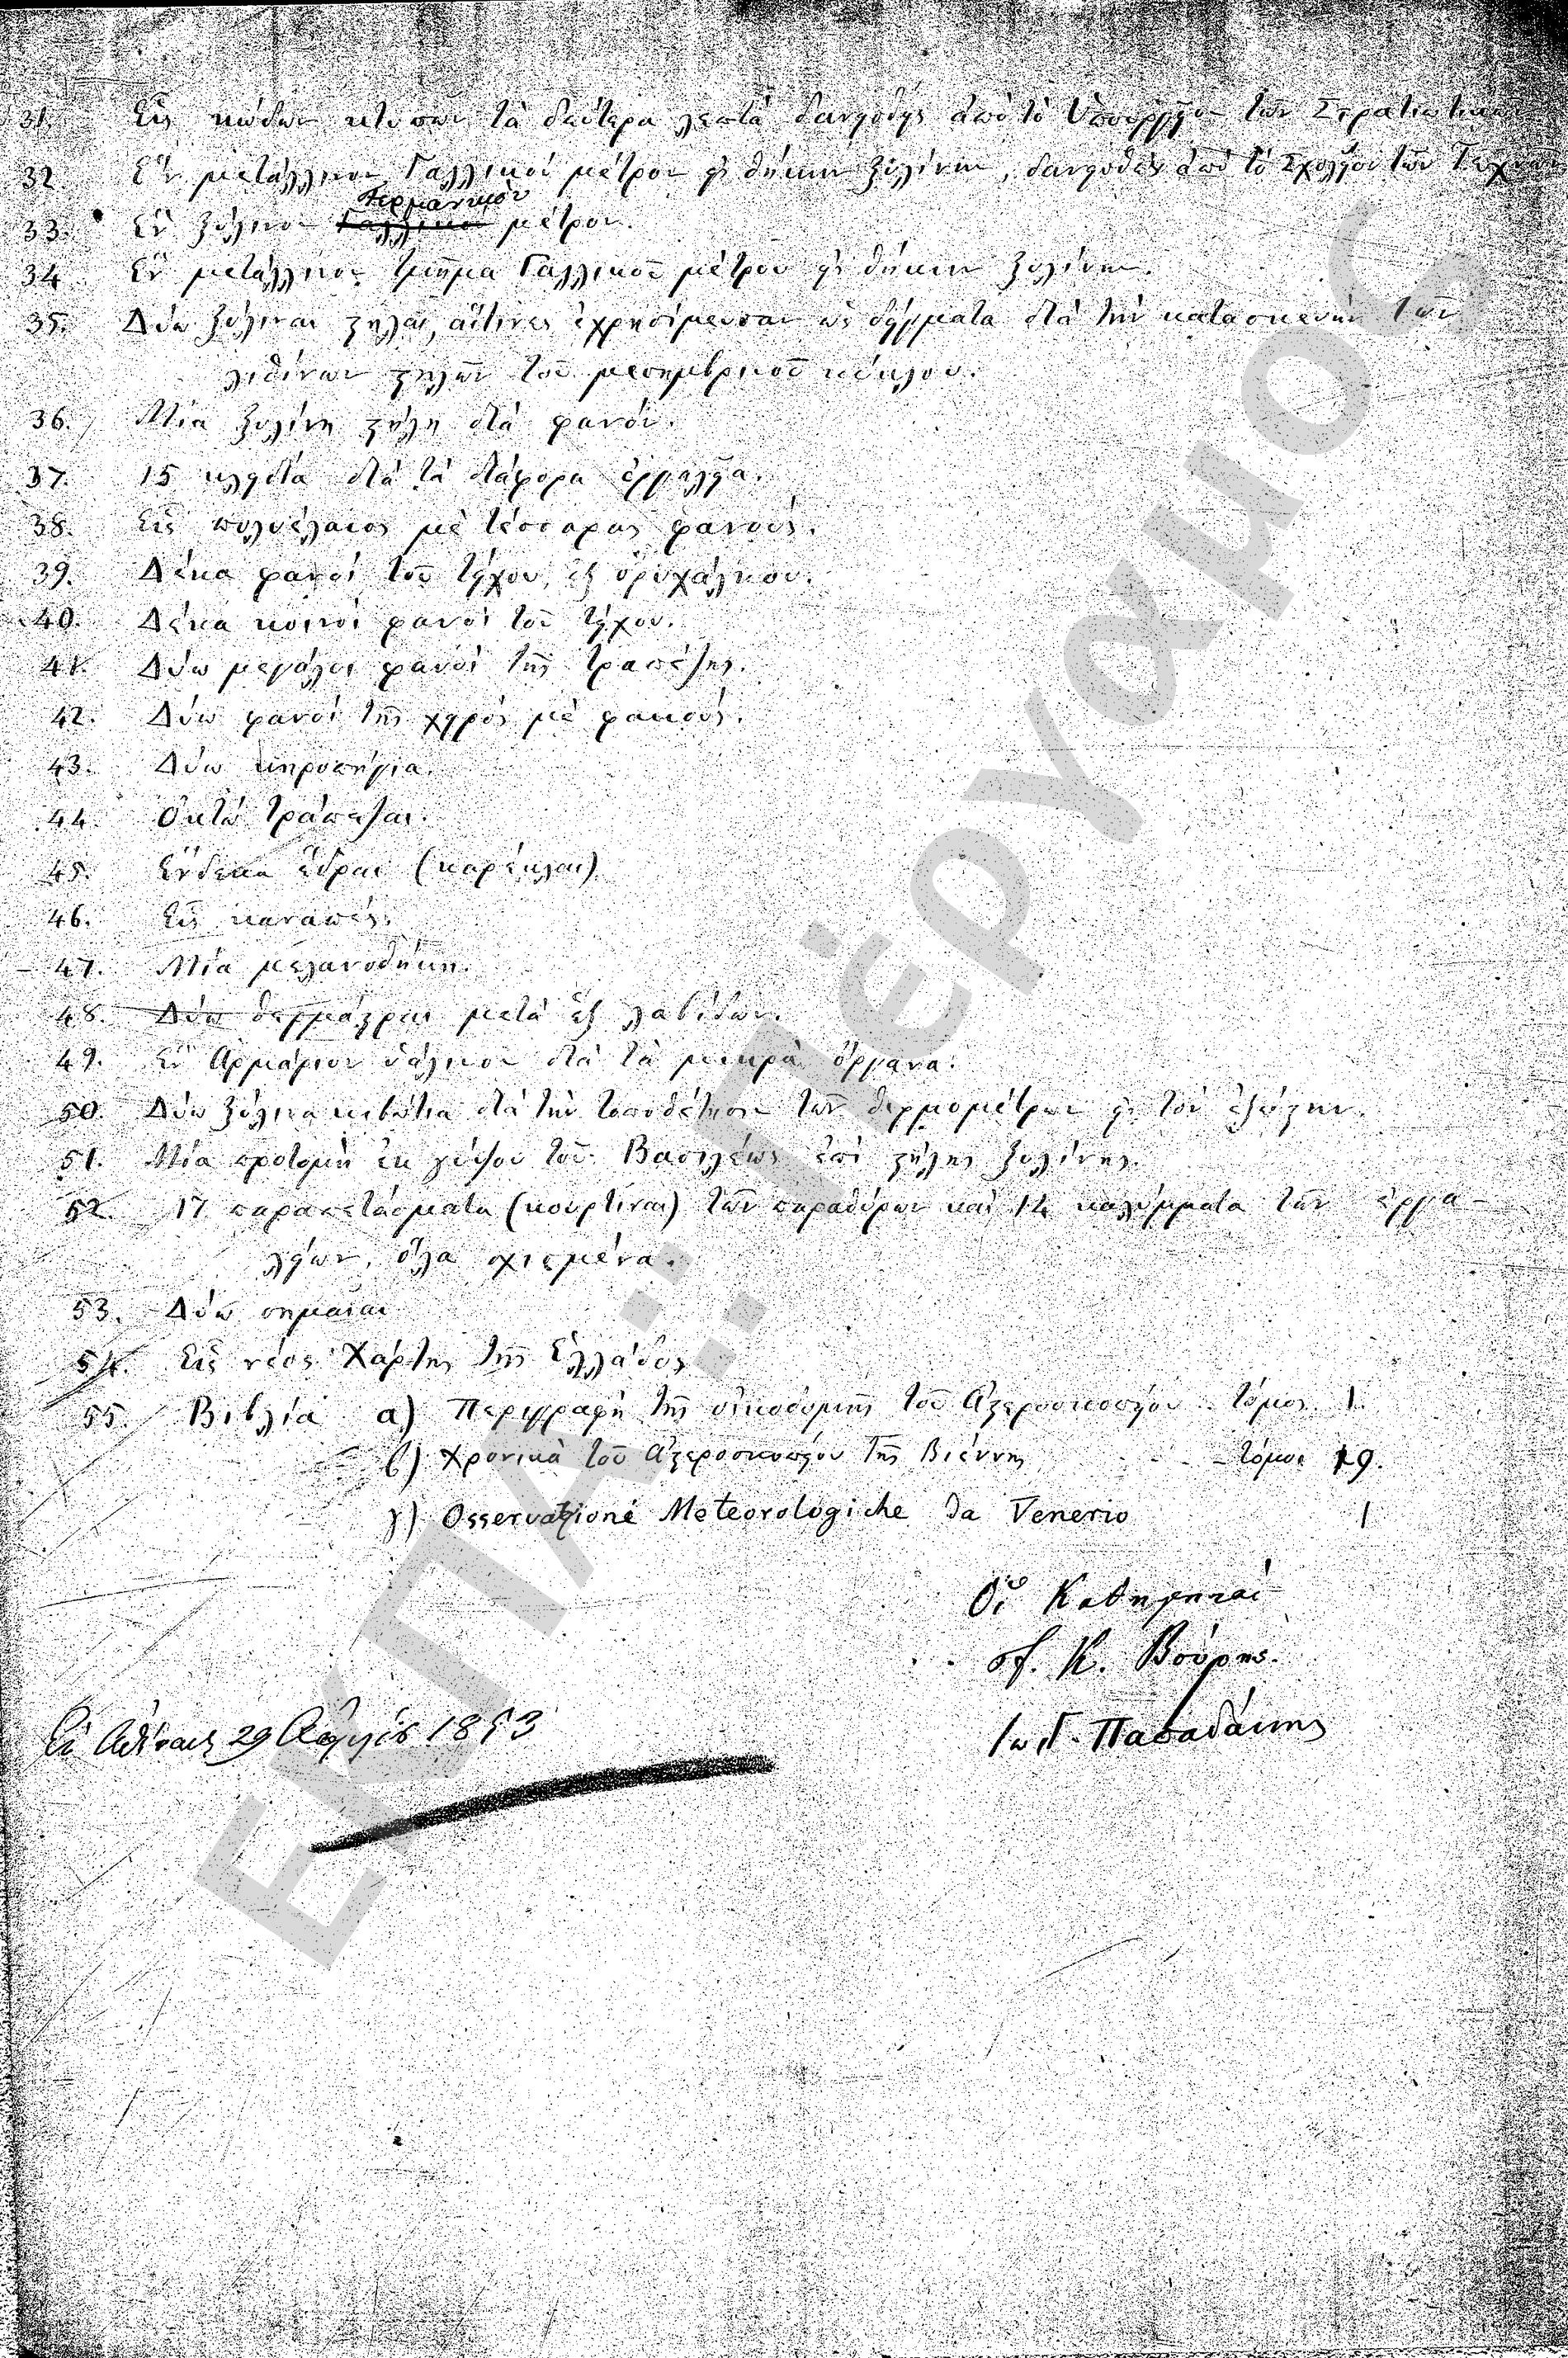 31. Εἷς κώδων κτυπῶν τὰ δεύτερα λεπτὰ δανεισθεὶς ἀπὸ τὸ Ὑπουργεῖον τῶν Στρατιωτικῶν
32 Ἓν μετάλλινον Γαλλικὸν μέτρον εἰς θήκην ξυλίνην, δανεισθὲν ἀπὸ τὸ Σχολεῖον τῶν Τεχνῶν
Γερμανικὸν
33. Ἓν ξύλινον Γαλλικὸν μέτρον.
34 Ἓν μετάλλινον τμῆμα Γαλλικοῦ μέτρου εἰς θήκην ξυλίνην.
35. Δύω ξύλιναι στῆλαι, αἵτινες ἐχρησίμευσαν ὡς δείγματα διὰ τὴν κατασκευὴν τῶν
λιθίνων στηλῶν τοῦ μεσημβρινοῦ κύκλου.
36. Μία ξυλίνη στήλη διὰ φανόν.
37. 15 κλειδία διὰ τὰ διάφορα ἐργαλεῖα.
38. Εἷς πολυέλαιος μὲ τέσσαρας φανούς.
39. Δέκα φανοὶ τοῦ τείχου, ἐξ ὀρυχάλκου.
40. Δέκα κοινοὶ φανοὶ τοῦ τείχου.
41. Δύω μεγάλοι φανοὶ τῆς τραπέζης.
42. Δύω φανοὶ τῆς χειρὸς μὲ φακούς.
43. Δύω κηροπήγια.
44. Ὀκτὼ τράπεζαι.
45. Ἕνδεκα ἕδραι (καρέκλαι)
46. Εἷς καναπές.
47. Μία μελανοθήκη.
48. Δύω θερμάστραι μετὰ ἓξ λαβίδων.
49. Ἓν Ἁρμάριον ὑάλινον διὰ τὰ μικρὰ ὄργανα.
50. Δύω ξύλινα κιβώτια διὰ τὴν τοποθέτησιν τῶν θερμομέτρων εἰς τὸν ἐξώστην.
51. Μία προτομὴ ἐκ γύψου τοῦ Βασιλέως ἐπὶ στήλης ξυλίνης.
52. 17 παραπετάσματα (κουρτίναι) τῶν παραθύρων καὶ 14 καλύμματα τῶν ἐργα-
λείων, ὅλα σχισμένα.
53. Δύω σημαῖαι
54. Εἷς νέος Χάρτης τῆς Ἑλλάδος
55. Βιβλία α) Περιγραφὴ τῆς οἰκοδομῆς τοῦ Ἀστεροσκοπείου τόμος 1.
β) Χρονικὰ τοῦ Ἀστεροσκοπείου τῆς Βιέννης - - - τόμοι 19.
γ) Osservazioné Meteorologiche da Venerio 1
Οἱ Καθηγηταὶ
Γ. Κ. Βούρης.
Ἰω. Γ. Παπαδάκης
Ἐν Ἀθήναις 29 1853
ΕΚΠΑ... Πέργαμος